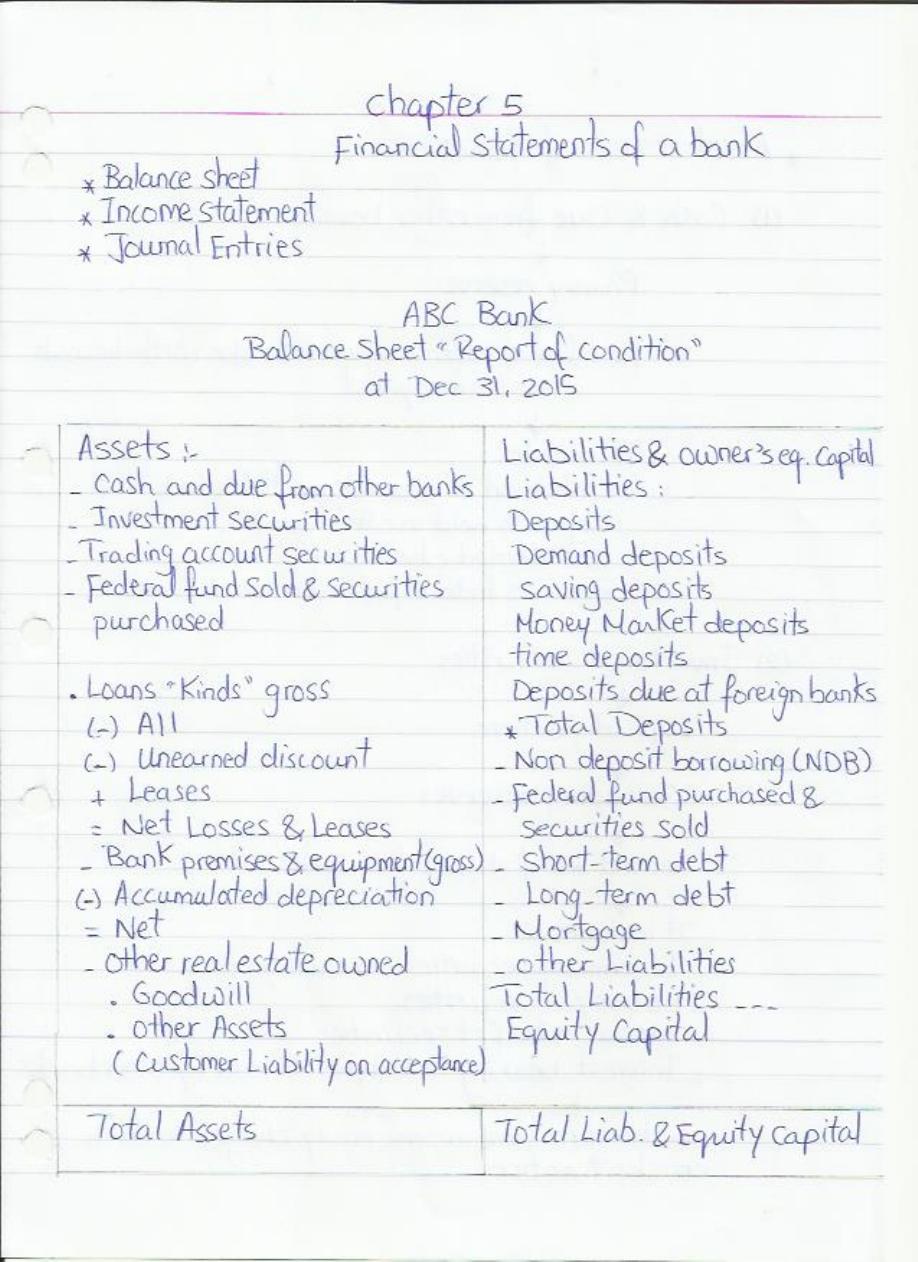 Chapter 5
Financial Statements of a bank
* Balance sheet
* Income statement
* Journal Entries
ABC Bank
Balance Sheet "Report of condition"
at Dec 31, 2015
Assets :-
- Cash and due from other banks
- Investment securities
- Trading account securities
- Federal fund Sold & securities
purchased
. Loans "Kinds" gross
(-) All
(-) Unearned discount
+ Leases
= Net Losses & Leases
- Bank premises & equipment (gross)
(-) Accumulated depreciation
= Net
- other real estate owned
. Goodwill
. other Assets
( Customer Liability on acceptance)
Total Assets
Liabilities & owner's eq. Capital
Liabilities :
Deposits
Demand deposits
saving deposits
Money Market deposits
time deposits
Deposits due at foreign banks
* Total Deposits
- Non deposit borrowing (NDB)
- Federal fund purchased &
securities sold
- Short-term debt
- Long-term debt
- Mortgage
- other Liabilities
Total Liabilities ---
Equity Capital
Total Liab. & Equity Capital